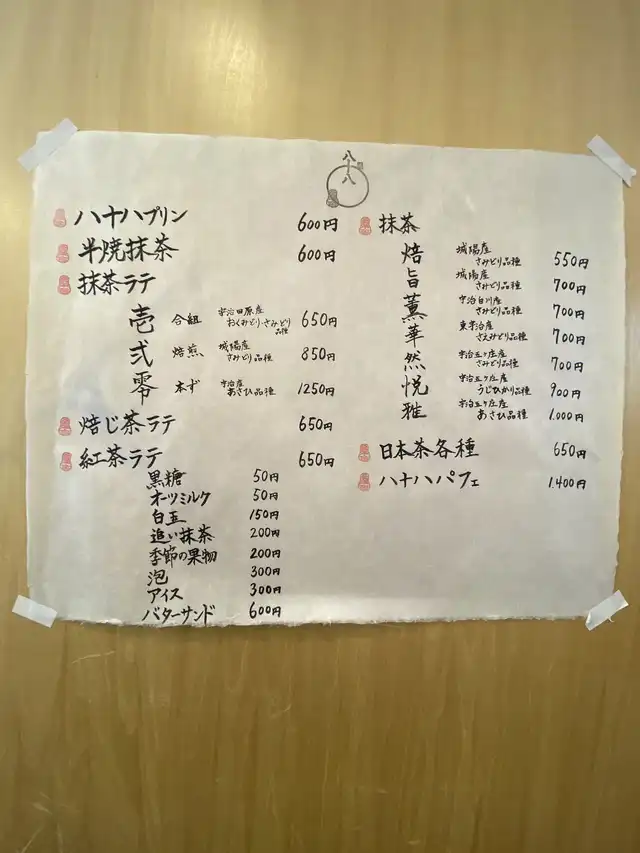 八十八
八十八プリン 600円
半焼抹茶 600円
抹茶ラテ
壱 合組 宇治田原産
おくみどり・さみどり
品種 650円
弐 焙煎 城陽産
さみどり品種 850円
零 本ず 宇治産
あさひ品種 1250円
焙じ茶ラテ 650円
紅茶ラテ 650円
黒糖 50円
オーツミルク 50円
白玉 150円
追い抹茶 200円
季節の果物 200円
泡 300円
アイス 300円
バターサンド 600円
抹茶
焙 城陽産
さみどり品種 550円
旨 城陽産
さみどり品種 700円
薫 宇治白川産
さみどり品種 700円
華 東宇治産
さえみどり品種 700円
然 宇治五ヶ庄産
さみどり品種 700円
悦 宇治五ヶ庄産
うじひかり品種 900円
雅 宇治五ヶ庄産
あさひ品種 1,000円
日本茶各種 650円
八十八パフェ 1,400円